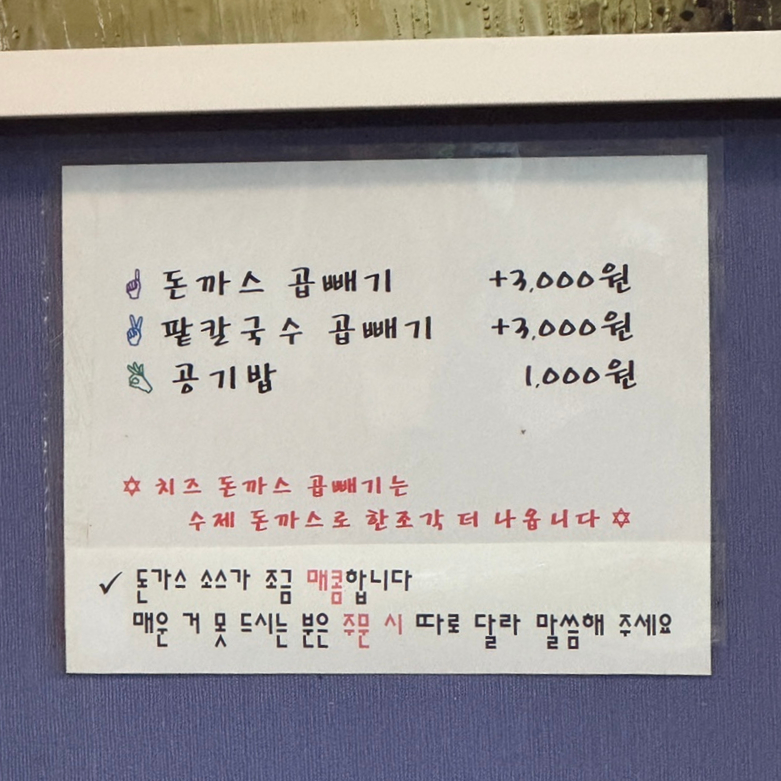 돈까스 곱빼기 +3,000원
팥칼국수 곱빼기 +3,000원
공기밥 1,000원
✡ 치즈 돈까스 곱빼기는
수제 돈까스로 한조각 더 나옵니다 ✡
✓ 돈가스 소스가 조금 매콤합니다
매운 거 못 드시는 분은 주문 시 따로 달라 말씀해 주세요